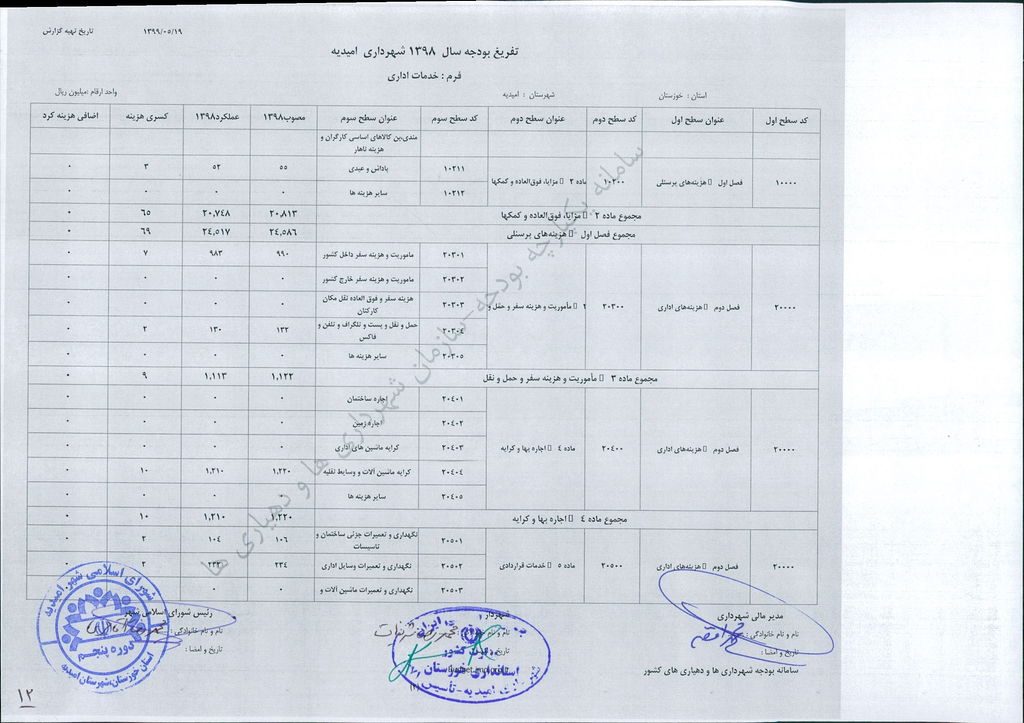 تاریخ تهیه گزارش ۱۳۹۹/۰۵/۱۹
تفریغ بودجه سال ۱۳۹۸ شهرداری امیدیه
فرم : خدمات اداری
استان : خوزستان شهرستان : امیدیه واحد ارقام :میلیون ریال
کد سطح اول عنوان سطح اول کد سطح دوم عنوان سطح دوم کد سطح سوم عنوان سطح سوم مصوب۱۳۹۸ عملکرد۱۳۹۸ کسری هزینه اضافی هزینه کرد
مندی،بن کالاهای اساسی کارگران و
هزینه ناهار
۱۰۰۰۰ فصل اول هزینه‌های پرسنلی ۱۰۲۰۰ ماده ۲ مزایا، فوق‌العاده و کمکها
۱۰۲۱۱ پاداش و عیدی ۵۵ ۵۲ ۳ ۰
۱۰۲۱۲ سایر هزینه ها ۰ ۰ ۰ ۰
مجموع ماده ۲ مزایا، فوق‌العاده و کمکها ۲۰,۸۱۳ ۲۰,۷۴۸ ۶۵ ۰
مجموع فصل اول هزینه‌های پرسنلی ۲۴,۵۸۶ ۲۴,۵۱۷ ۶۹ ۰
۲۰۰۰۰ فصل دوم هزینه‌های اداری ۲۰۳۰۰ ۲ مأموریت و هزینه سفر و حمل و
۲۰۳۰۱ ماموریت و هزینه سفر داخل کشور ۹۹۰ ۹۸۳ ۷ ۰
۲۰۳۰۲ ماموریت و هزینه سفر خارج کشور ۰ ۰ ۰ ۰
۲۰۳۰۳ هزینه سفر و فوق العاده نقل مکان
کارکنان ۰ ۰ ۰ ۰
۲۰۳۰۴ حمل و نقل و پست و تلگراف و تلفن و
فاکس ۱۳۲ ۱۳۰ ۲ ۰
۲۰۳۰۵ سایر هزینه ها ۰ ۰ ۰ ۰
مجموع ماده ۳ مأموریت و هزینه سفر و حمل و نقل ۱,۱۲۲ ۱,۱۱۳ ۹ ۰
۲۰۰۰۰ فصل دوم هزینه‌های اداری ۲۰۴۰۰ ماده ۴ اجاره بها و کرایه
۲۰۴۰۱ اجاره ساختمان ۰ ۰ ۰ ۰
۲۰۴۰۲ اجاره زمین ۰ ۰ ۰ ۰
۲۰۴۰۳ کرایه ماشین های اداری ۰ ۰ ۰ ۰
۲۰۴۰۴ کرایه ماشین آلات و وسایط نقلیه ۱,۲۲۰ ۱,۲۱۰ ۱۰ ۰
۲۰۴۰۵ سایر هزینه ها ۰ ۰ ۰ ۰
مجموع ماده ۴ اجاره بها و کرایه ۱,۲۲۰ ۱,۲۱۰ ۱۰ ۰
۲۰۰۰۰ فصل دوم هزینه‌های اداری ۲۰۵۰۰ ماده ۵ خدمات قراردادی
۲۰۵۰۱ نگهداری و تعمیرات جزئی ساختمان و
تاسیسات ۱۰۶ ۱۰۴ ۲ ۰
۲۰۵۰۲ نگهداری و تعمیرات وسایل اداری ۲۳۴ ۲۳۲ ۲ ۰
۲۰۵۰۳ نگهداری و تعمیرات ماشین آلات و ۰ ۰
سامانه یکپارچه بودجه-سازمان شهرداری ها و دهیاری ها
مدیر مالی شهرداری شهردار رئیس شورای اسلامی شهر
نام و نام خانوادگی : نام و نام خانوادگی :
تاریخ و امضا : تاریخ و امضا :
سامانه بودجه شهرداری ها و دهیاری های کشور
شورای اسلامی شهر امیدیه
دوره پنجم
استان خوزستان،شهرستان امیدیه
وزارت کشور
استانداری خوزستان
امیدیه - تأسیس
۱۲